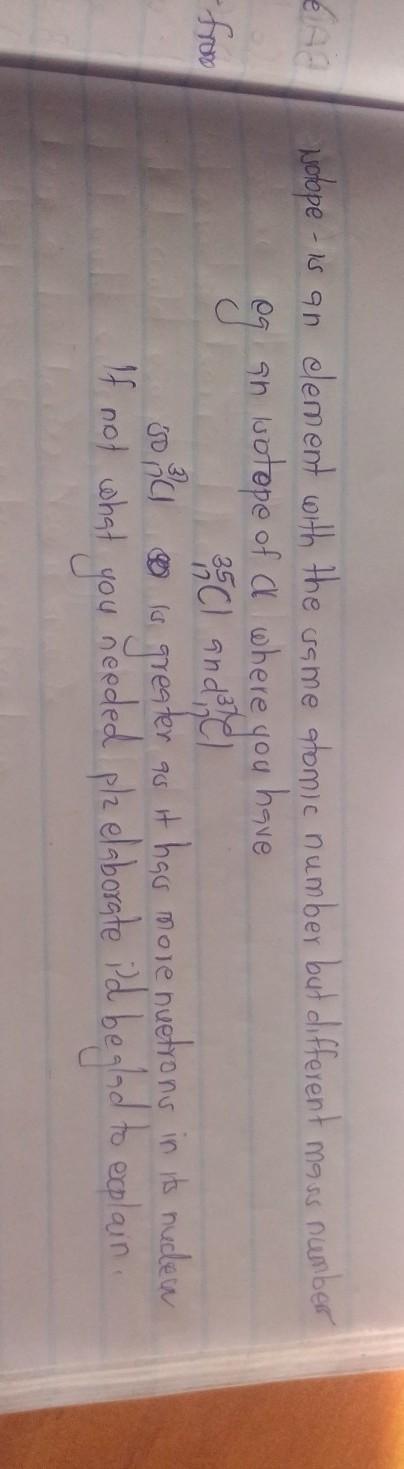 isotope - is an element with the same atomic number but different mass number
eg an isotope of Cl where you have
³⁵₁₇Cl and ³⁷₁₇Cl
so ³⁷₁₇Cl is greater as it has more nuetrons in its nucleus
If not what you needed plz elaborate i'd be glad to explain.
from